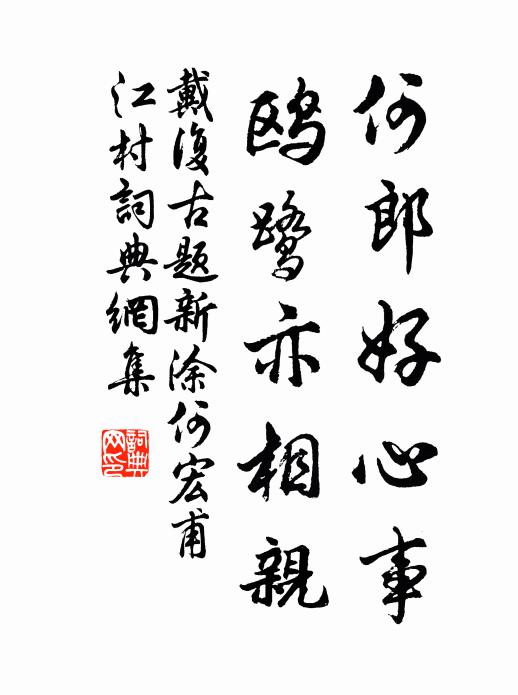 何郎好心事
鸥鹭亦相親
戴復古题新涂何宏甫
江村詞典網集
詞典网印